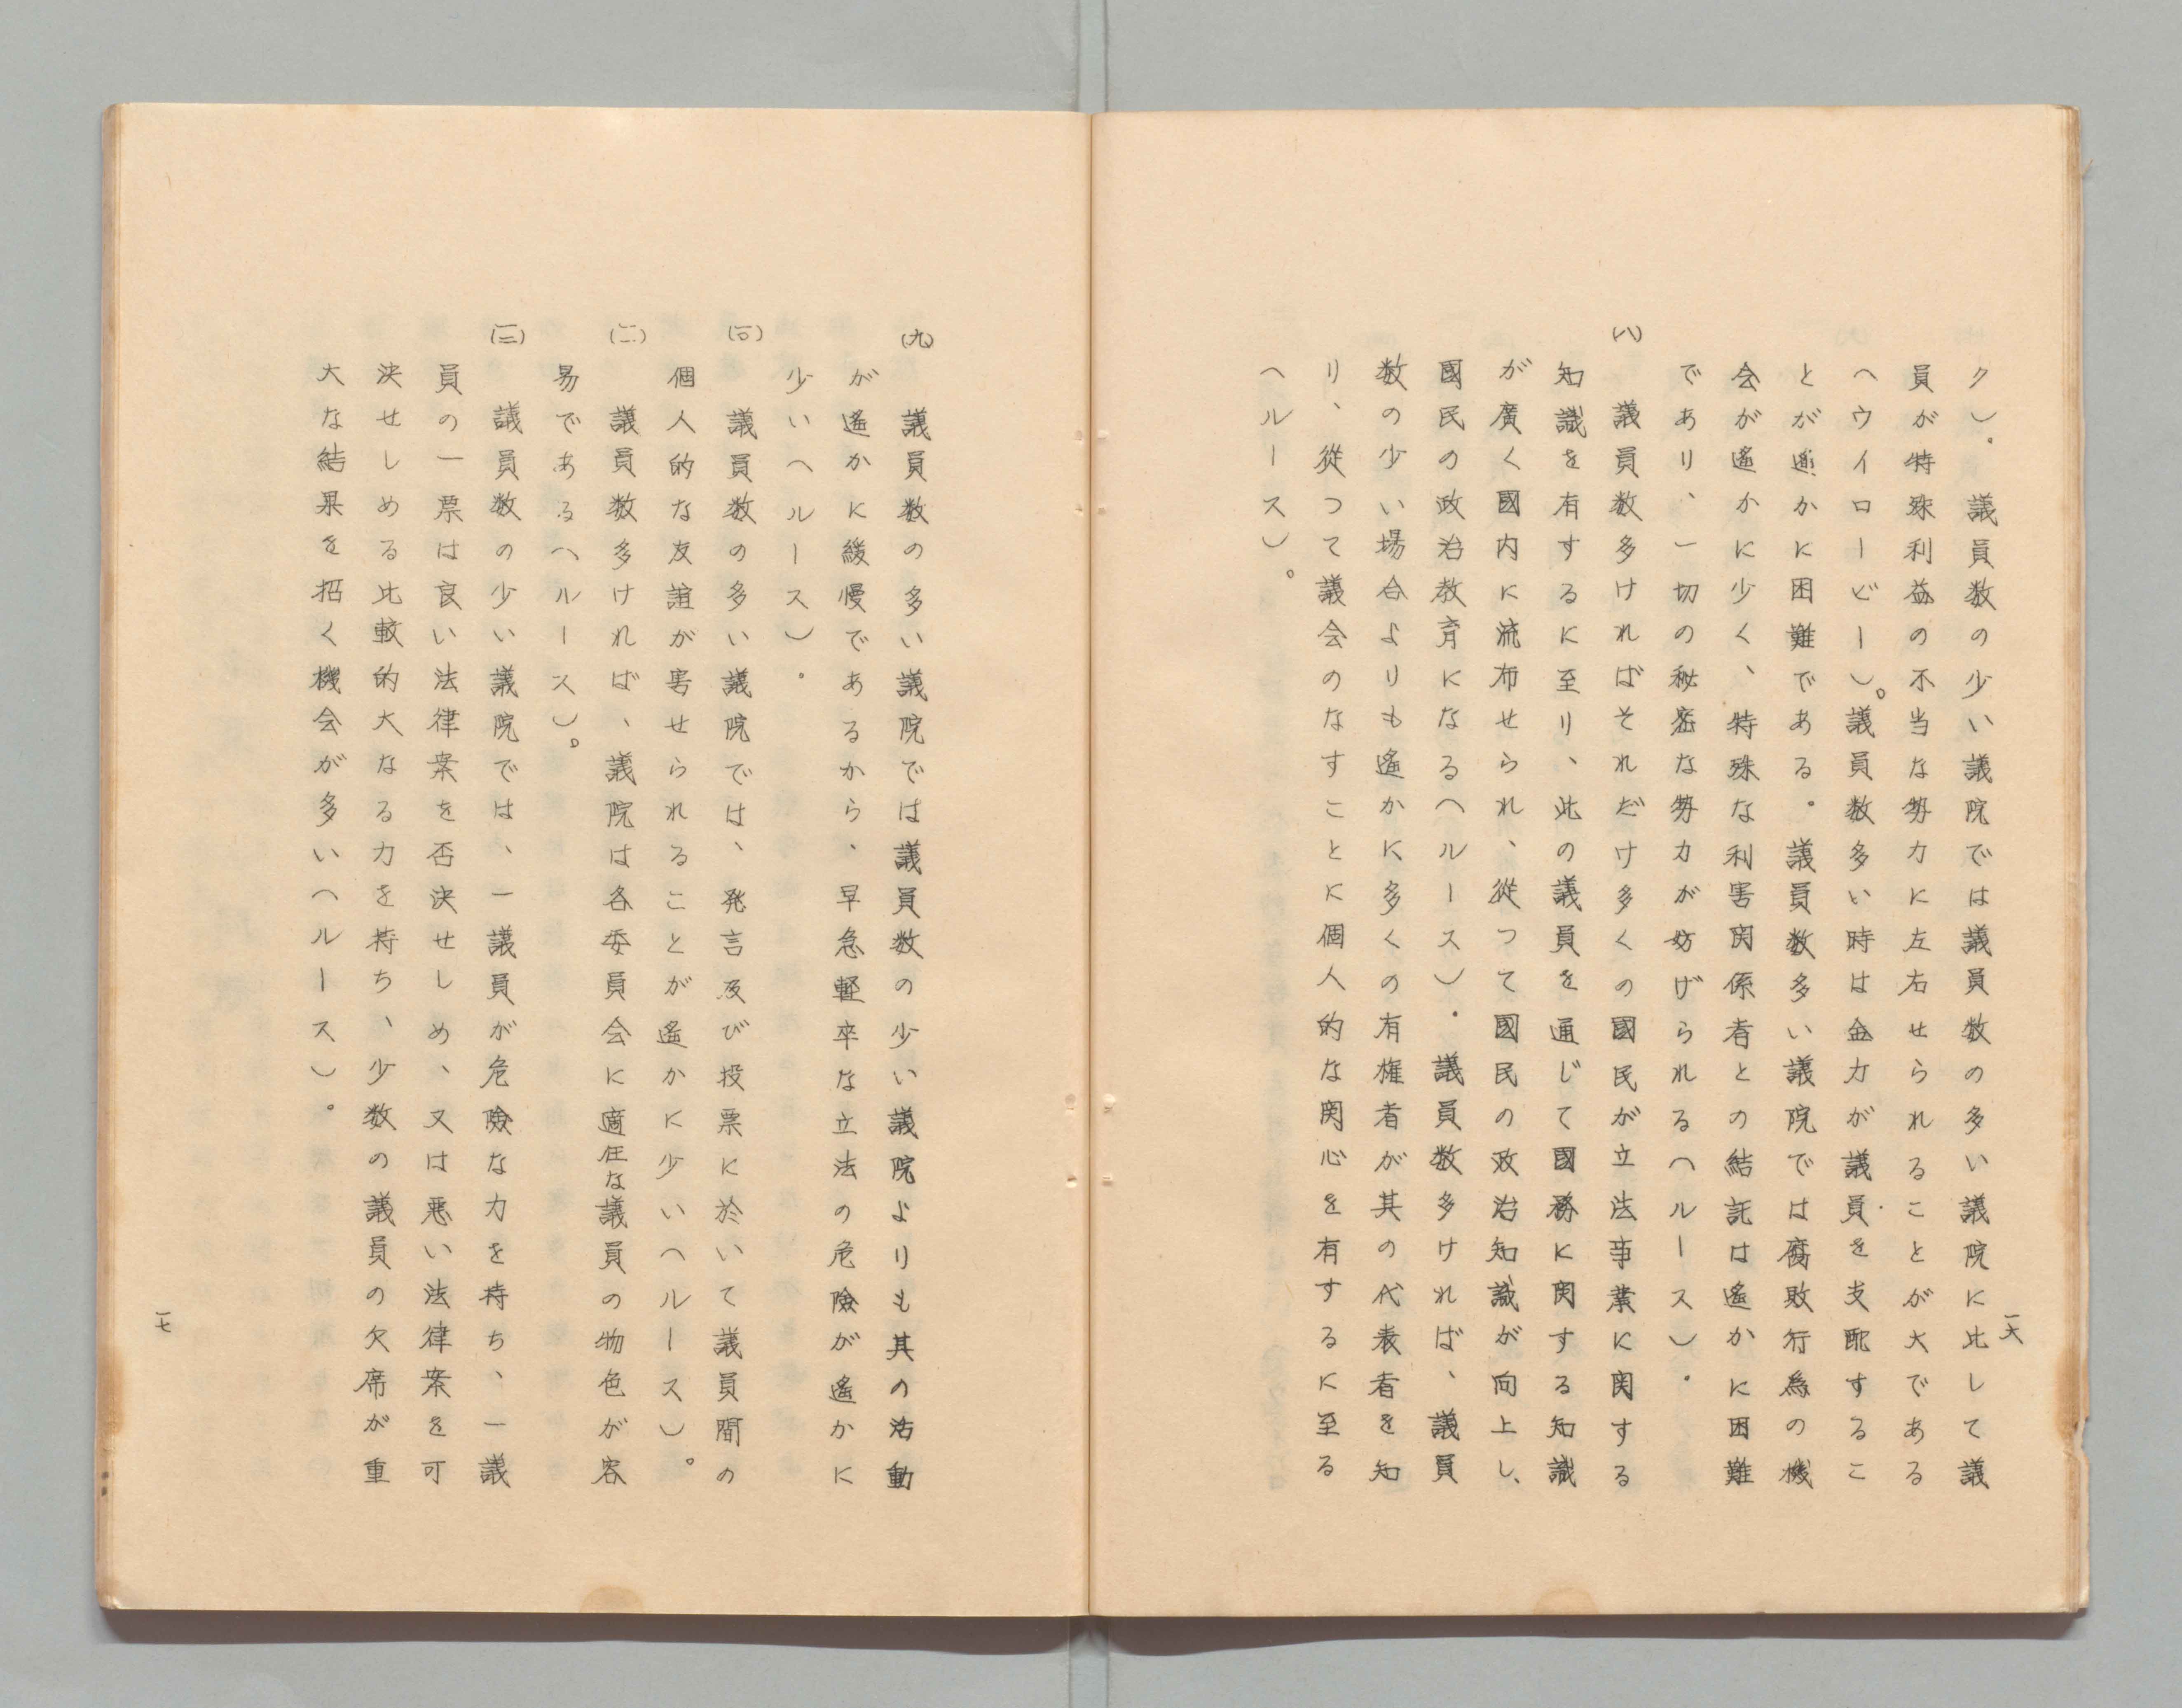 ク）。議員数の少い議院では議員数の多い議院に比して議
員が特殊利益の不当な勢力に左右せられることが大である
（ウイロービー）。議員数多い時は金力が議員を支配するこ
とが遥かに困難である。議員数多い議院では腐敗行為の機
会が遥かに少く、特殊な利害関係者との結託は遥かに困難
であり、一切の秘密な勢力が妨げられる（ルース）。
（八）
議員数多ければそれだけ多くの國民が立法事業に関する
知識を有するに至り、此の議員を通じて國務に関する知識
が廣く國内に流布せられ、從つて國民の政治知識が向上し、
國民の政治教育になる（ルース）。議員数多ければ、議員
数の少い場合よりも遥かに多くの有権者が其の代表者を知
り、從つて議会のなすことに個人的な関心を有するに至る
（ルース）。
一六
（九）
議員数の多い議院では議員数の少い議院よりも其の活動
が遥かに緩慢であるから、早急軽卒な立法の危險が遥かに
少い（ルース）。
（一〇）
議員数の多い議院では、発言及び投票に於いて議員間の
個人的な友誼が害せられることが遥かに少い（ルース）。
（二）
議員数多ければ、議院は各委員会に適任な議員の物色が容
易である（ルース）。
（三）
議員数の少い議院では、一議員が危險な力を持ち、一議
員の一票は良い法律案を否決せしめ、又は悪い法律案を可
決せしめる比較的大なる力を持ち、少数の議員の欠席が重
大な結果を招く機会が多い（ルース）。
一七